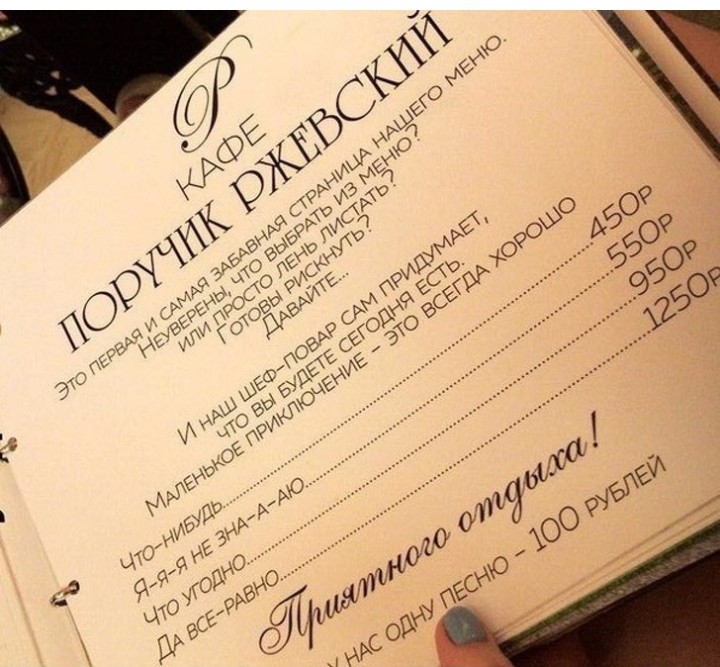 Р
КАФЕ
ПОРУЧИК РЖЕВСКИЙ
Это первая и самая забавная страница нашего меню.
Неуверены, что выбрать из меню?
или просто лень листать?
Готовы рискнуть?
Давайте...
И наш шеф-повар сам придумает,
что вы будете сегодня есть.
Маленькое приключение - это всегда хорошо
Что-нибудь........450р
Я-я-я не зна-а-аю........550р
Что угодно........950р
Да все-равно........1250р
Приятного отдыха!
У НАС ОДНУ ПЕСНЮ - 100 РУБЛЕЙ